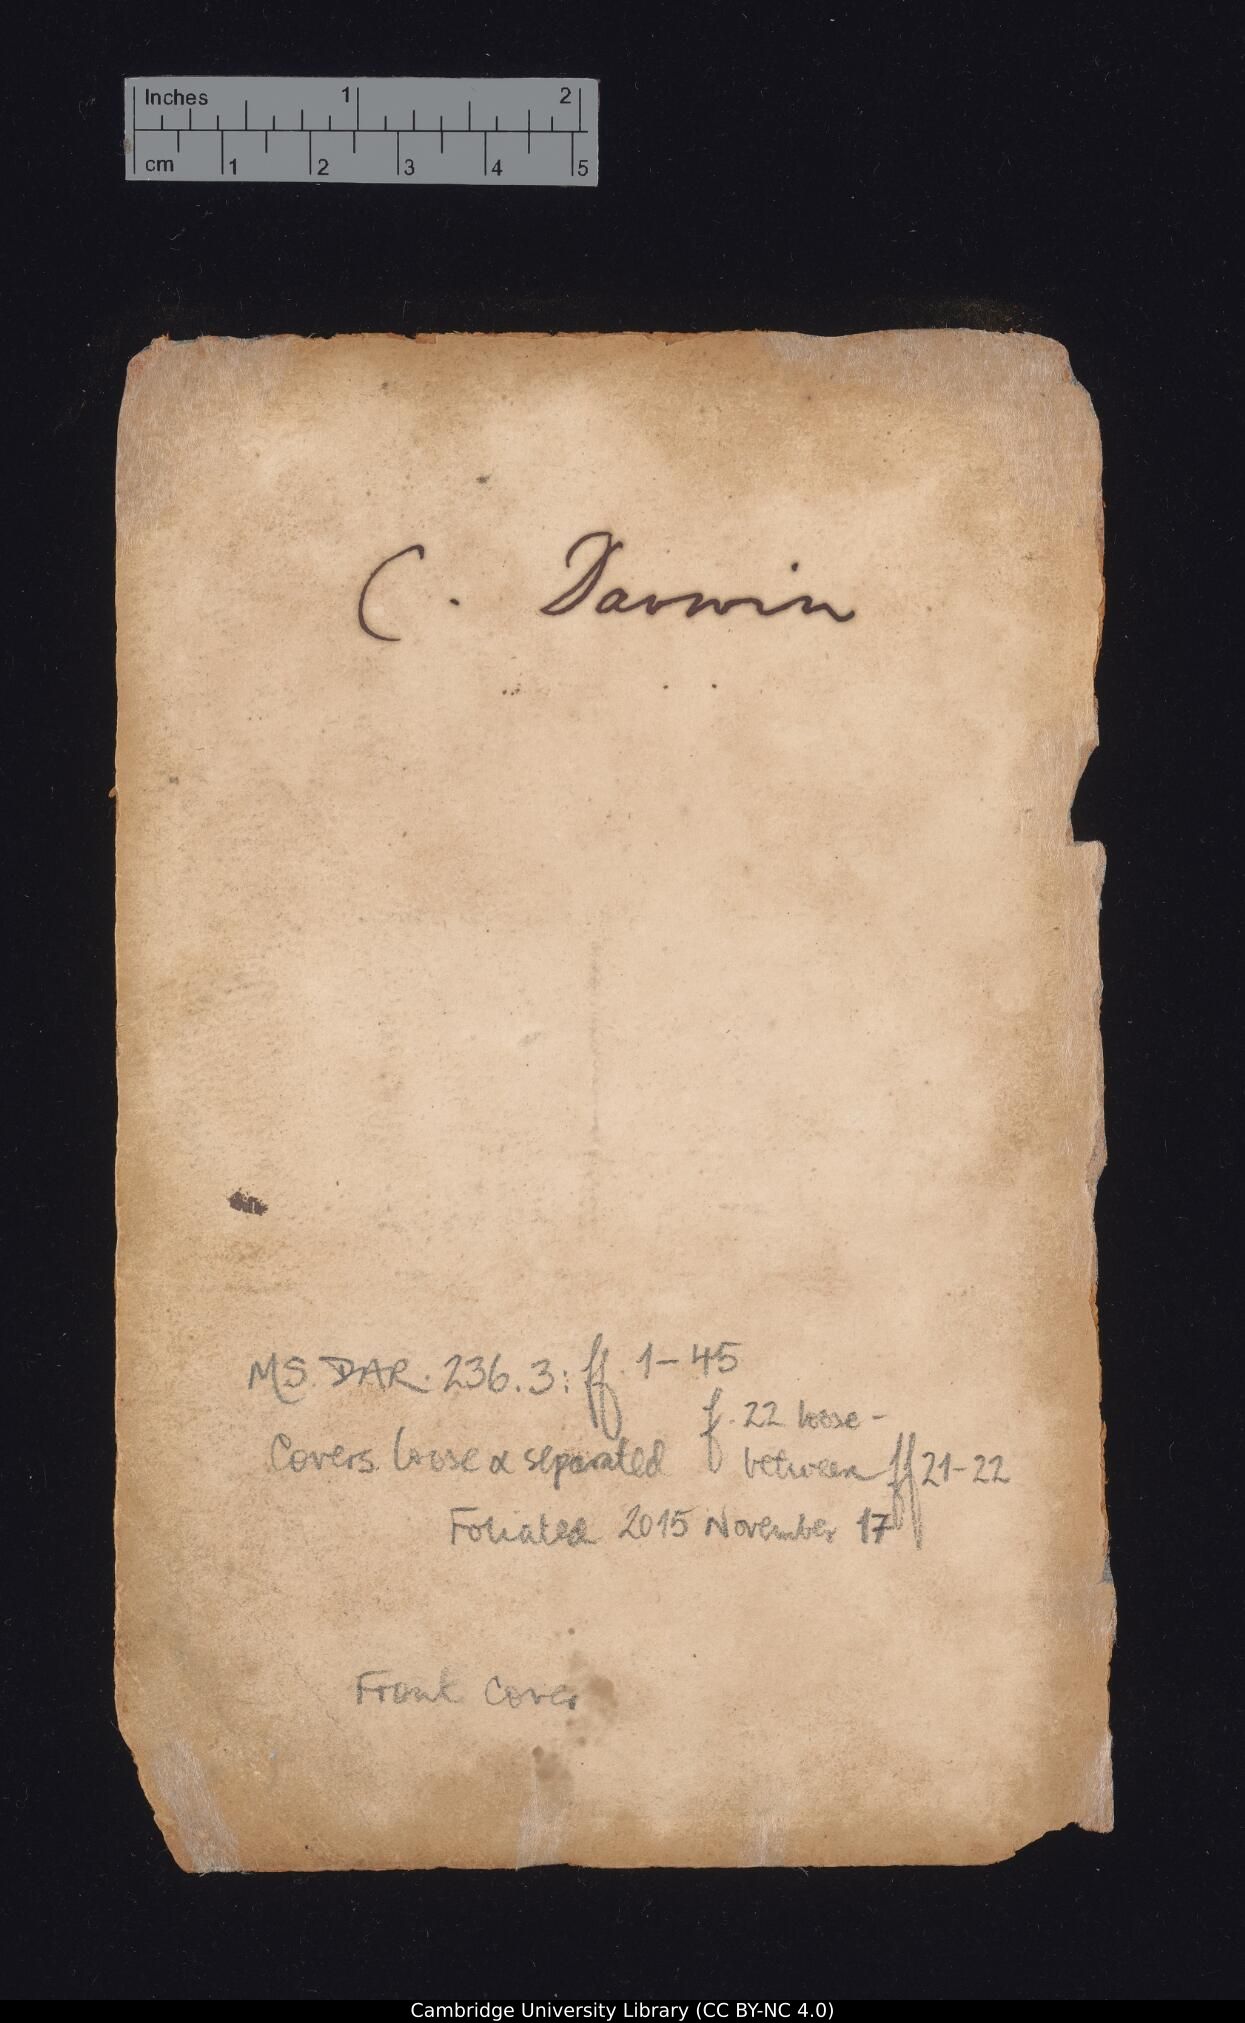 Inches 1 2
cm 1 2 3 4 5
C. Darwin
MS. DAR. 236.3: ff. 1-45
f. 22 loose -
Covers loose & separated
between ff 21-22
Foliated 2015 November 17
Front Cover
Cambridge University Library (CC BY-NC 4.0)